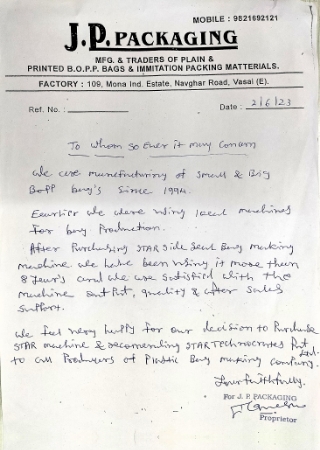 MOBILE : 9821692121
J.P. PACKAGING
MFG. & TRADERS OF PLAIN &
PRINTED B.O.P.P. BAGS & IMMITATION PACKING MATTERIALS.
FACTORY : 109, Mona Ind. Estate, Navghar Road, Vasai (E).
Ref. No. :
Date : 2/6/23
To Whom so Ever it may Concern
We are manufruturing of Small & Big
BoPP bag's Since 1994.
Eaurlier We were using local machines
for bag Production.
After Purchasing STAR Side Seal Bag making
machine we have been using it more then
8 year's and we are satisfied with the
machine out Put, quality & after sales
support.
We feel very haply for our decision to Purchase
STAR machine & recomending STAR Technocrates Pvt Ltd.
to all Producers of Plastic Bag making company.
Your faithfuly.
For J. P. PACKAGING
Proprietor